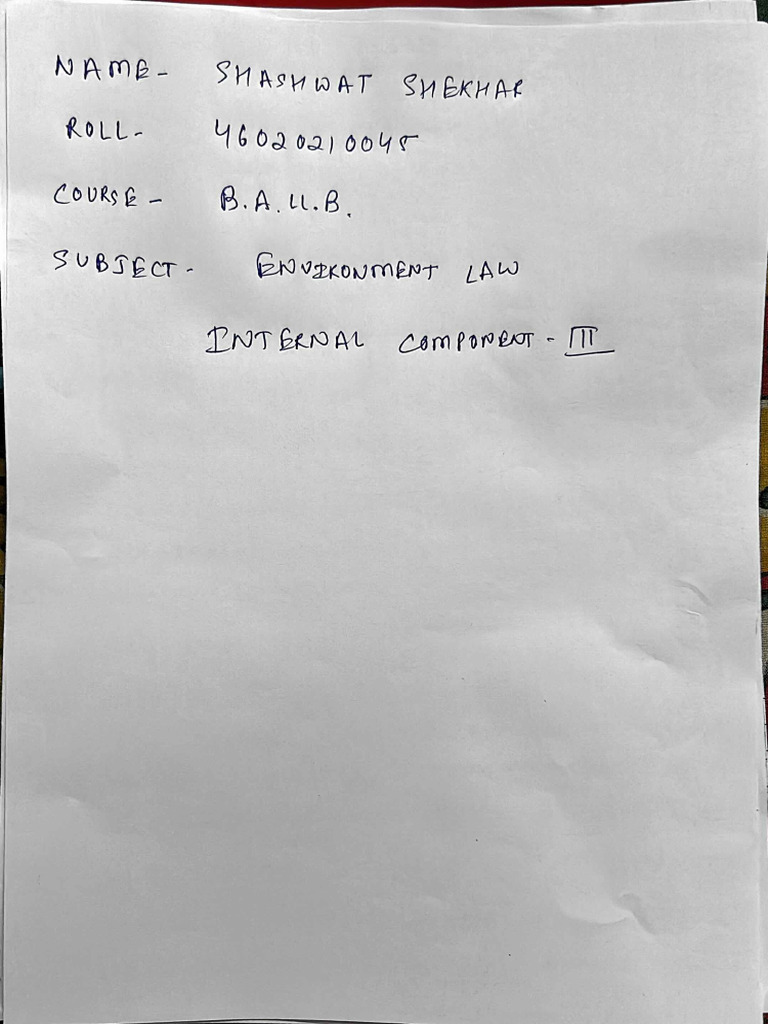 NAME- SHASHWAT SHEKHAR
ROLL- 46020210045
COURSE- B.A. LL.B.
SUBJECT- ENVIRONMENT LAW
INTERNAL COMPONENT- III